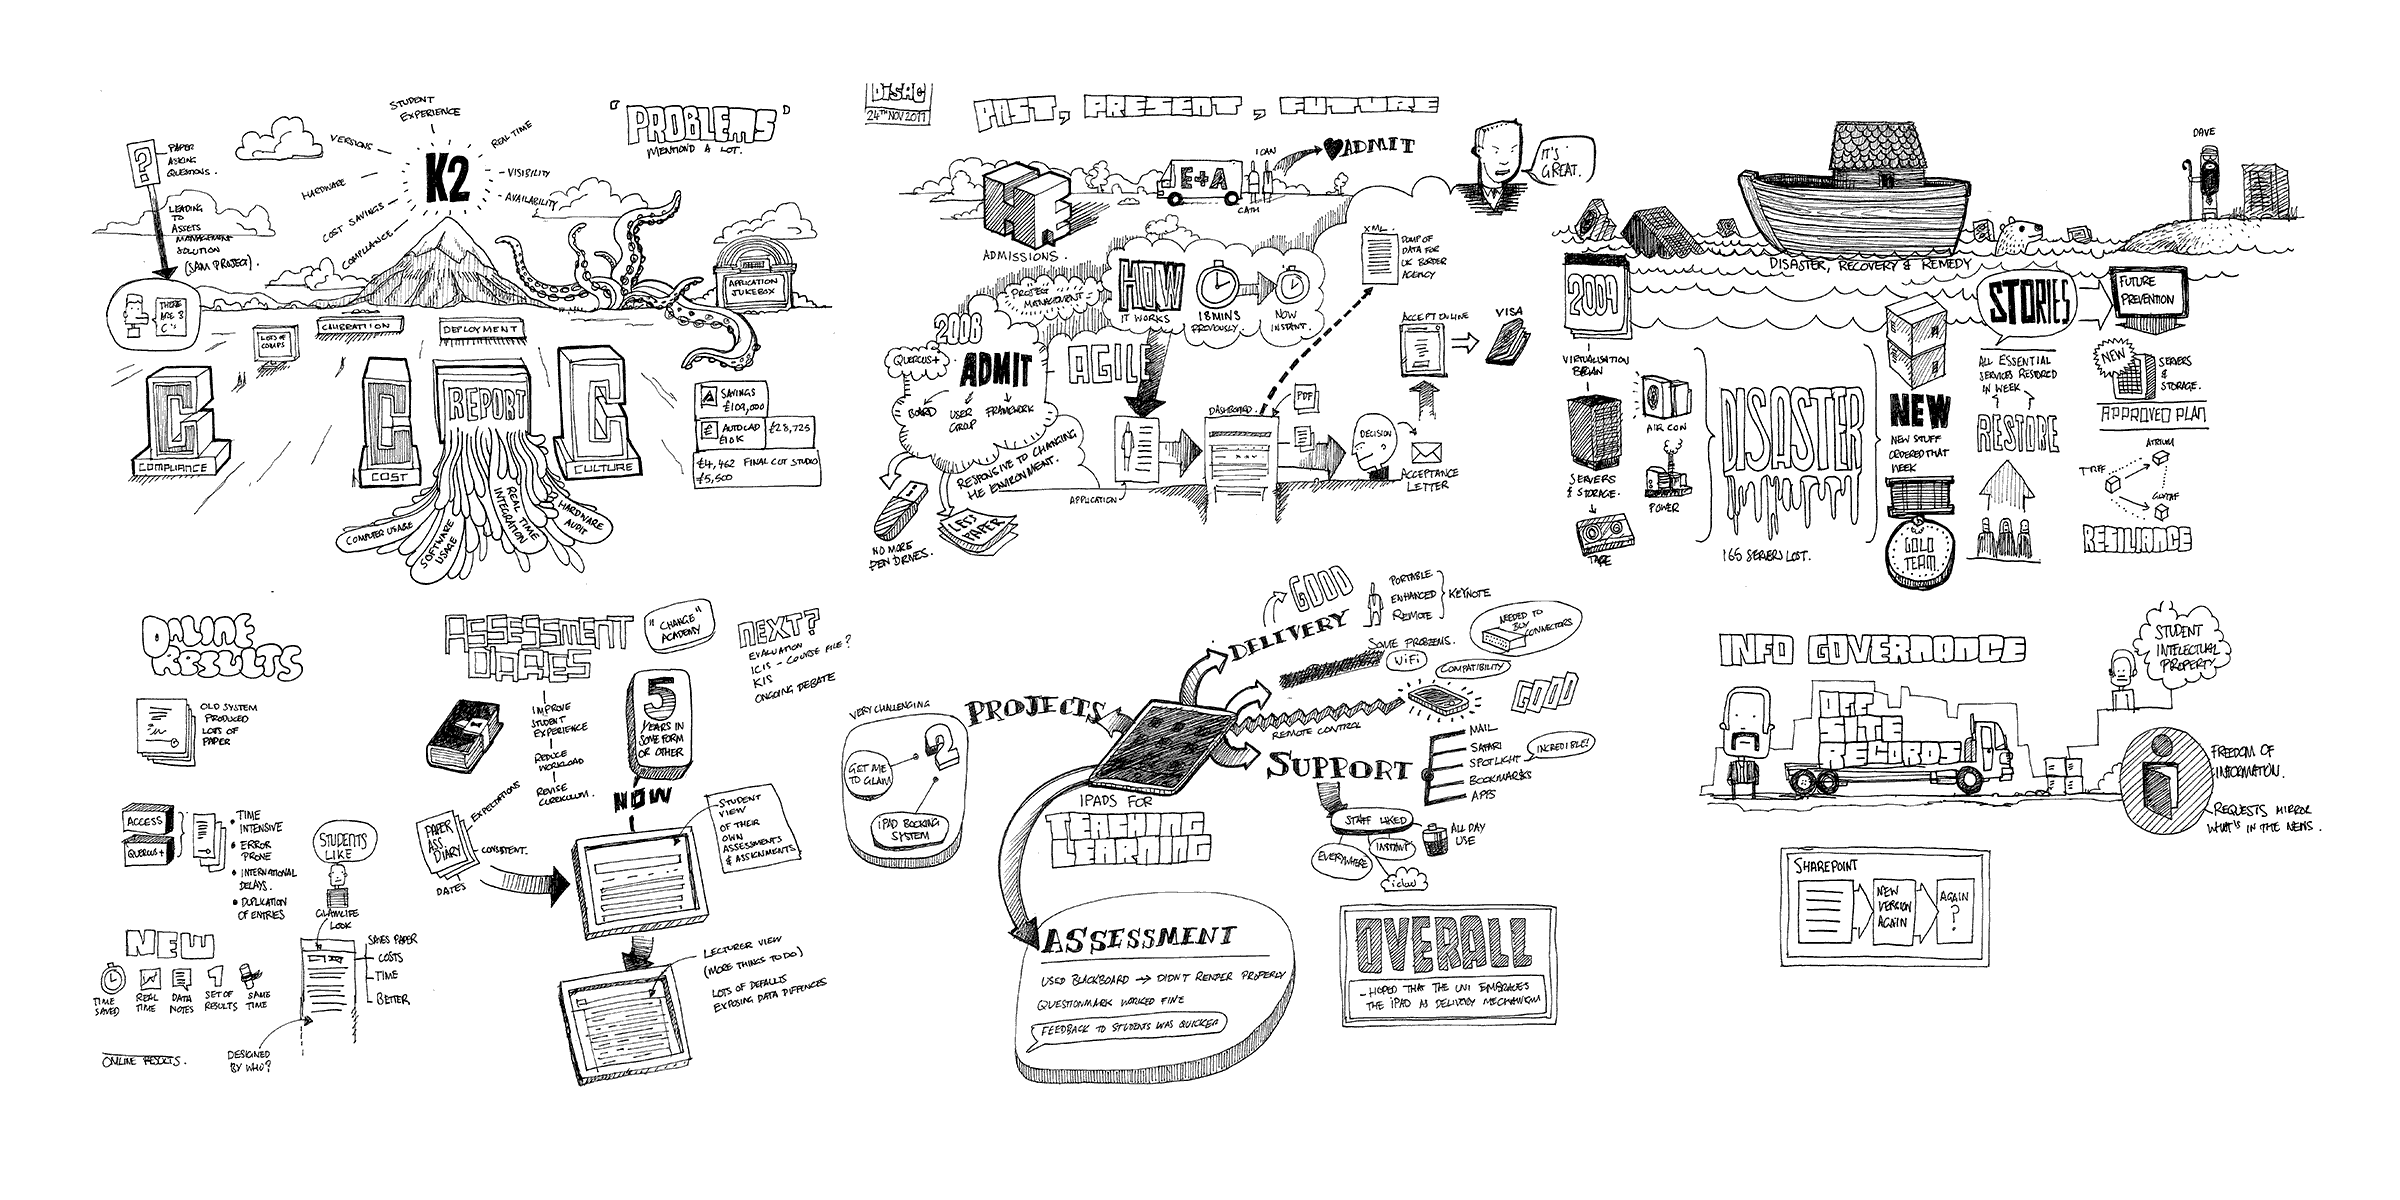 "PROBLEMS"
MENTIOND A LOT.
STUDENT
EXPERIENCE
REAL TIME
VERSIONS
K2
VISIBILITY
HARDWARE
AVAILABILITY
COST SAVINGS
COMPLIANCE
?
PAPER
ASKING
QUESTIONS.
LEADING
TO
ASSETS
MANAGEMENT
SOLUTION
(SAM PROJECT).
THERE
ARE 3
C's
APPLICATION
JUKEBOX
LOTS OF
COMPS
DEPLOYMENT
C
COMPLIANCE
C
COST
REPORT
C
CULTURE
COMPUTER USAGE
SOFTWARE
USAGE
REAL TIME
INTEGRATION
HARDWARE
AUDIT
SAVINGS
£109,000
£
AUTOCAD
£10K
£28,725
£4,462 FINAL CUT STUDIO
£5,500
DISAG
24TH NOV 2011
PAST, PRESENT, FUTURE
H.E
ADMISSIONS.
E+A
I CAN
CATH
ADMIT
IT'S
GREAT.
XML.
DUMP OF
DATA FOR
UK BORDER
AGENCY
PROJECT
MANAGEMENT
HOW
IT WORKS
18 MINS
PREVIOUSLY
NOW
INSTANT.
2008
QUERCUS+
ADMIT
BOARD
USER
GROUP
FRAMEWORK
AGILE
RESPONSIVE TO CHANGING
HE ENVIRONMENT.
NO MORE
PEN DRIVES.
LESS
PAPER
APPLICATION
DASHBOARD
PDF
DECISION
ACCEPTANCE
LETTER
ACCEPT ONLINE
VISA
DAVE
DISASTER, RECOVERY & REMEDY
2009
VIRTUALISATION
BEGAN
SERVERS
& STORAGE.
TAPE
AIR CON
POWER
DISASTER
165 SERVERS LOST.
NEW
NEW STUFF
ORDERED THAT
WEEK
GOLD
TEAM
STORIES
ALL ESSENTIAL
SERVICES RESTORED
IN WEEK
RESTORE
FUTURE
PREVENTION
NEW
SERVERS
&
STORAGE.
APPROVED PLAN
ATRIUM
RESILIANCE
ONLINE
RESULTS
OLD SYSTEM
PRODUCED
LOTS OF
PAPER
ACCESS
QUERCUS+
• TIME
INTENSIVE
• ERROR
PRONE
• INTERNATIONAL
DELAYS.
• DUPLICATION
OF ENTRIES
STUDENTS
LIKE
GLAMLIFE
LOOK
SAVES PAPER
COSTS
TIME
BETTER
NEW
TIME
SAVED
REAL
TIME
DATA
NOTES
1
SET OF
RESULTS
SAME
TIME
ONLINE RESULTS.
DESIGNED
BY WHO?
ASSESSMENT
DIARIES
"CHANGE"
ACADEMY
NEXT?
EVALUATION
ICIS - COURSE FILE?
KIS
ONGOING DEBATE
IMPROVE
STUDENT
EXPERIENCE
REDUCE
WORKLOAD
REVISE
CURRICULUM.
5
YEARS IN
SOME FORM
OR OTHER
NOW
PAPER
ASS.
DIARY
EXPECTATIONS
CONSISTENT.
DATES
STUDENT
VIEW
OF THEIR
OWN
ASSESSMENTS
& ASSIGNMENTS
LECTURER VIEW
(MORE THINGS TO DO)
LOTS OF DEFAULTS
EXPOSING DATA DIFFENCES
VERY CHALLENGING
2
GET ME
TO GLAM
iPAD BOOKING
SYSTEM
PROJECTS
IPADS FOR
TEACHING
LEARNING
GOOD
DELIVERY
PORTABLE
ENHANCED
REMOTE
KEYNOTE
SOME PROBLEMS.
WiFi
NEEDED TO
BUY
CONNECTORS
COMPATIBILITY
REMOTE CONTROL
GOOD
SUPPORT
MAIL
SAFARI
SPOTLIGHT
INCREDIBLE!
BOOKMARKS
APPS
STAFF LIKED
EVERYWHERE
INSTANT
ALL DAY
USE
ASSESSMENT
USED BLACKBOARD → DIDN'T RENDER PROPERLY
QUESTIONMARK WORKED FINE
FEEDBACK TO STUDENTS WAS QUICKER
OVERALL
- HOPED THAT THE UNI EMBRACES
THE iPAD AS DELIVERY MECHANISM
INFO GOVERNANCE
OFF
SITE
RECORDS
STUDENT
INTELECTUAL
PROPERTY
FREEDOM OF
INFORMATION.
REQUESTS MIRROR
WHAT'S IN THE NEWS.
SHAREPOINT
NEW
VERSION
AGAIN
AGAIN
?